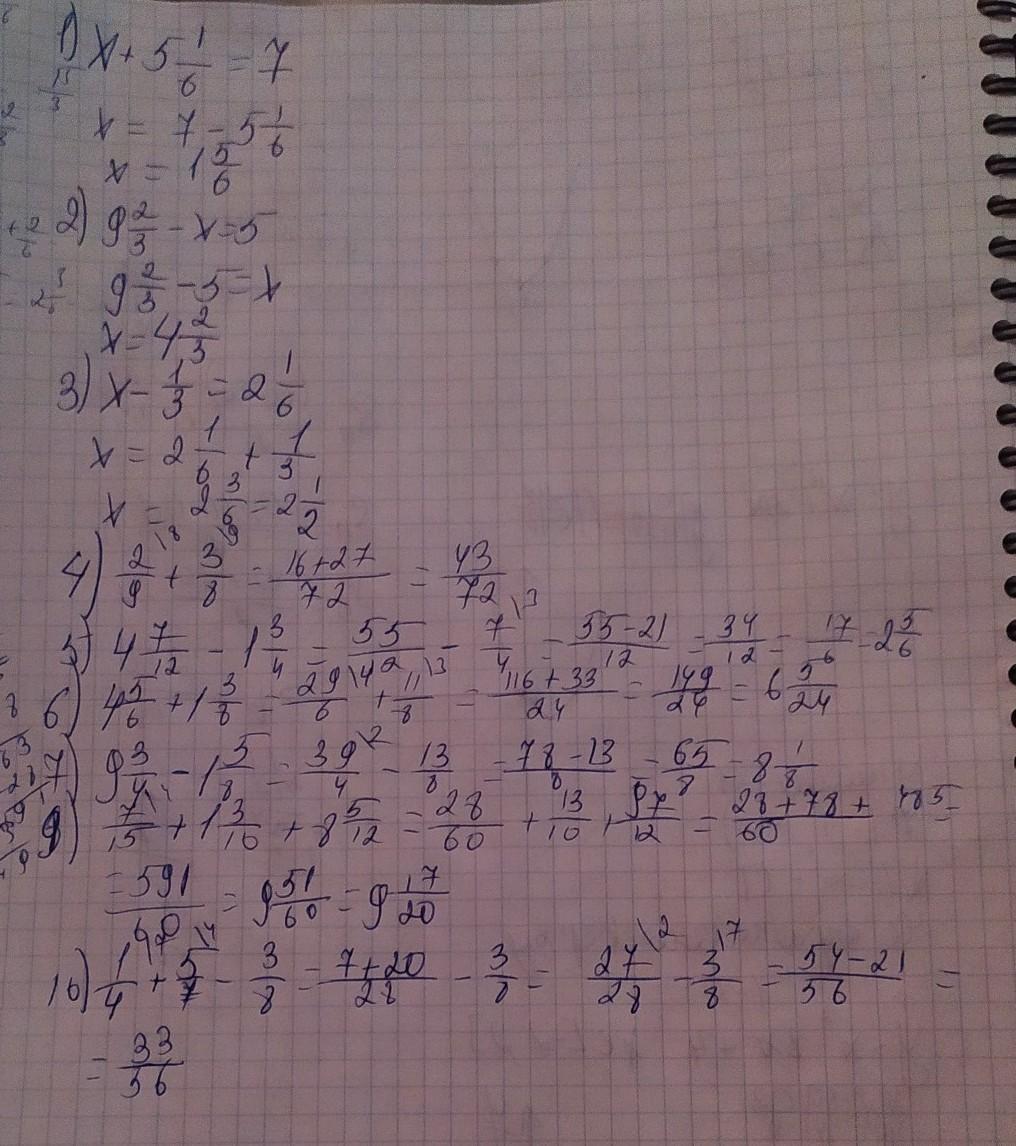 1) x + 5 1/6 = 7
x = 7 - 5 1/6
x = 1 5/6
2) 9 2/3 - x = 5
9 2/3 - 5 = x
x = 4 2/3
3) x - 1/3 = 2 1/6
x = 2 1/6 + 1/3
x = 2 3/6 = 2 1/2
4) 2/9 \8 + 3/8 \9 = 16+27/72 = 43/72
5) 4 7/12 - 1 3/4 = 55/12 - 7/4 \3 = 55-21/12 = 34/12 = 17/6 = 2 5/6
6) 4 5/6 + 1 3/8 = 29/6 \4 + 11/8 \3 = 116+33/24 = 149/24 = 6 5/24
7) 9 3/4 - 1 5/8 = 39/4 \2 - 13/8 = 78-13/8 = 65/8 = 8 1/8
9) 7/15 + 1 3/10 + 8 5/12 = 28/60 + 13/10 + 97/12 = 28+78+485/60 =
= 591/60 = 9 51/60 = 9 17/20
10) 1/4 \7 + 5/7 \4 - 3/8 = 7+20/28 - 3/8 = 27/28 \2 - 3/8 \7 = 54-21/56 =
= 33/56